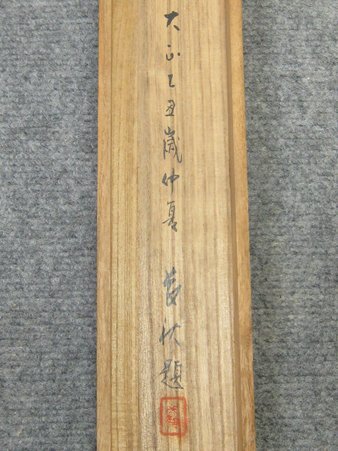 大正乙丑歲仲夏 題